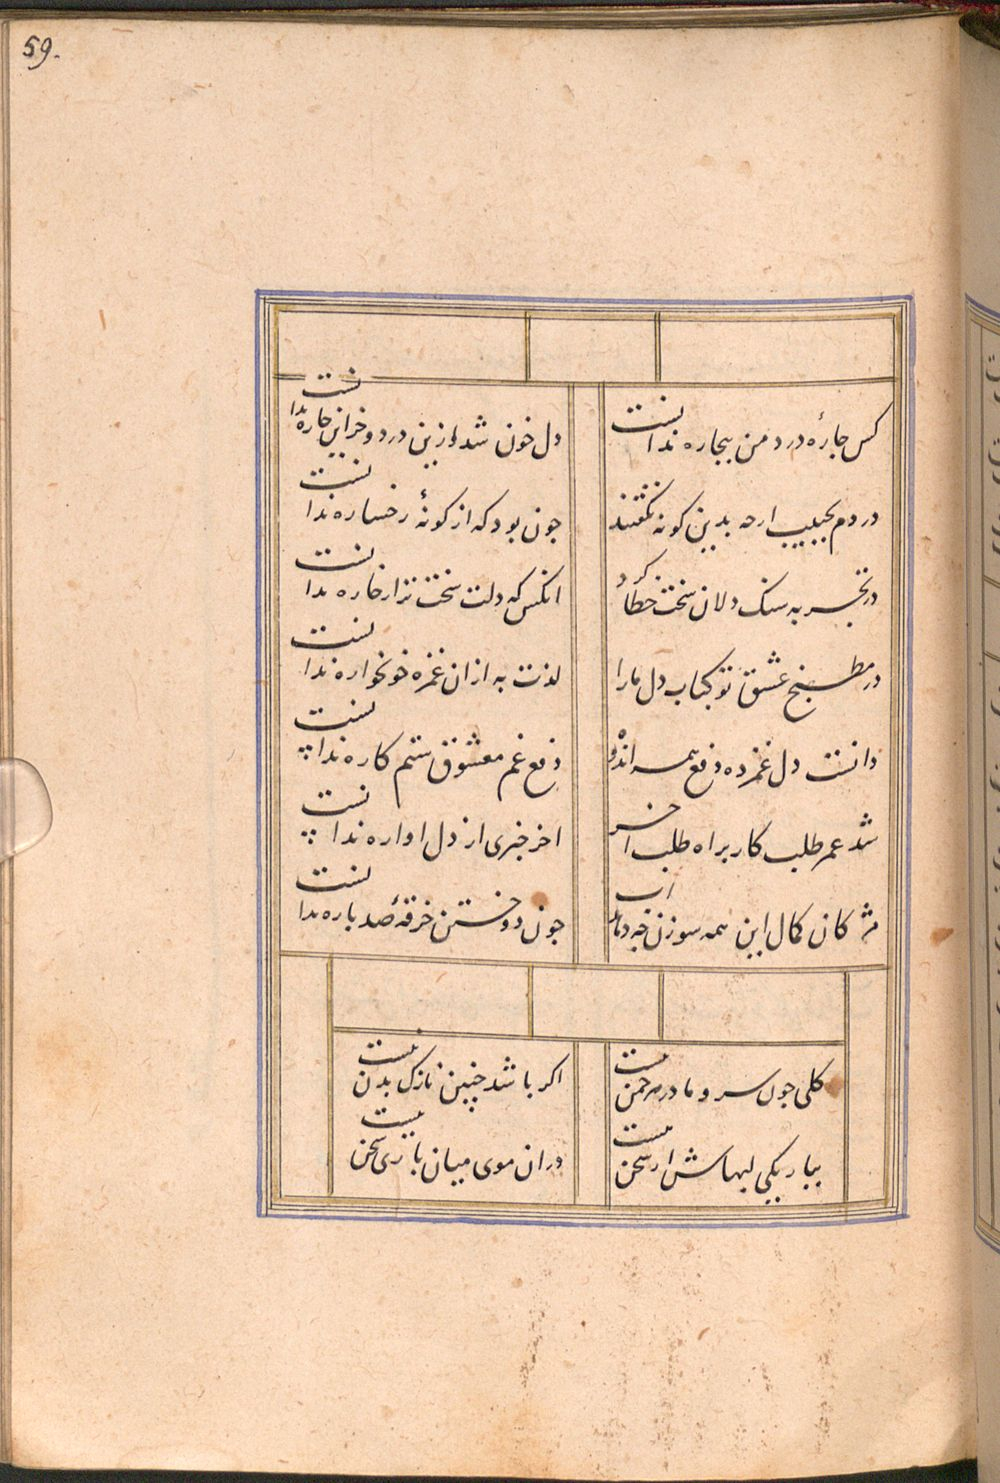 59.
کس جارهٔ درد من بیجاره ندانست
دل خون شد و ازین درد و خز این جاره ندانست
دردم بحبیب ارحه بدین کونه نکفتند
جون بود که از کونهٔ رخساره ندانست
در تجربه سنک دلان سخت خطا کرد
انکس که دلت سخت تر از خاره ندانست
در مطبخ عشق تو کباب دل ما را
لذت به از ان غمزه خونخواره ندانست
دانست دل غمزده دفع همه اندوه
دفع غم معشوق ستم کاره ندانست
شد عمر طلب کار براه طلب اخر
اخر خبری از دل اواره ندانست
مژکان کمال این همه سوزن جه دهد اب
جون دوختن خرقهٔ صد باره ندانست
کلی جون سرو ما در هر جمن نیست
اکر باشد جنین نازک بدن نیست
بباریکی لبهاش ار سخن هست
در ان موی میان باری سخن نیست